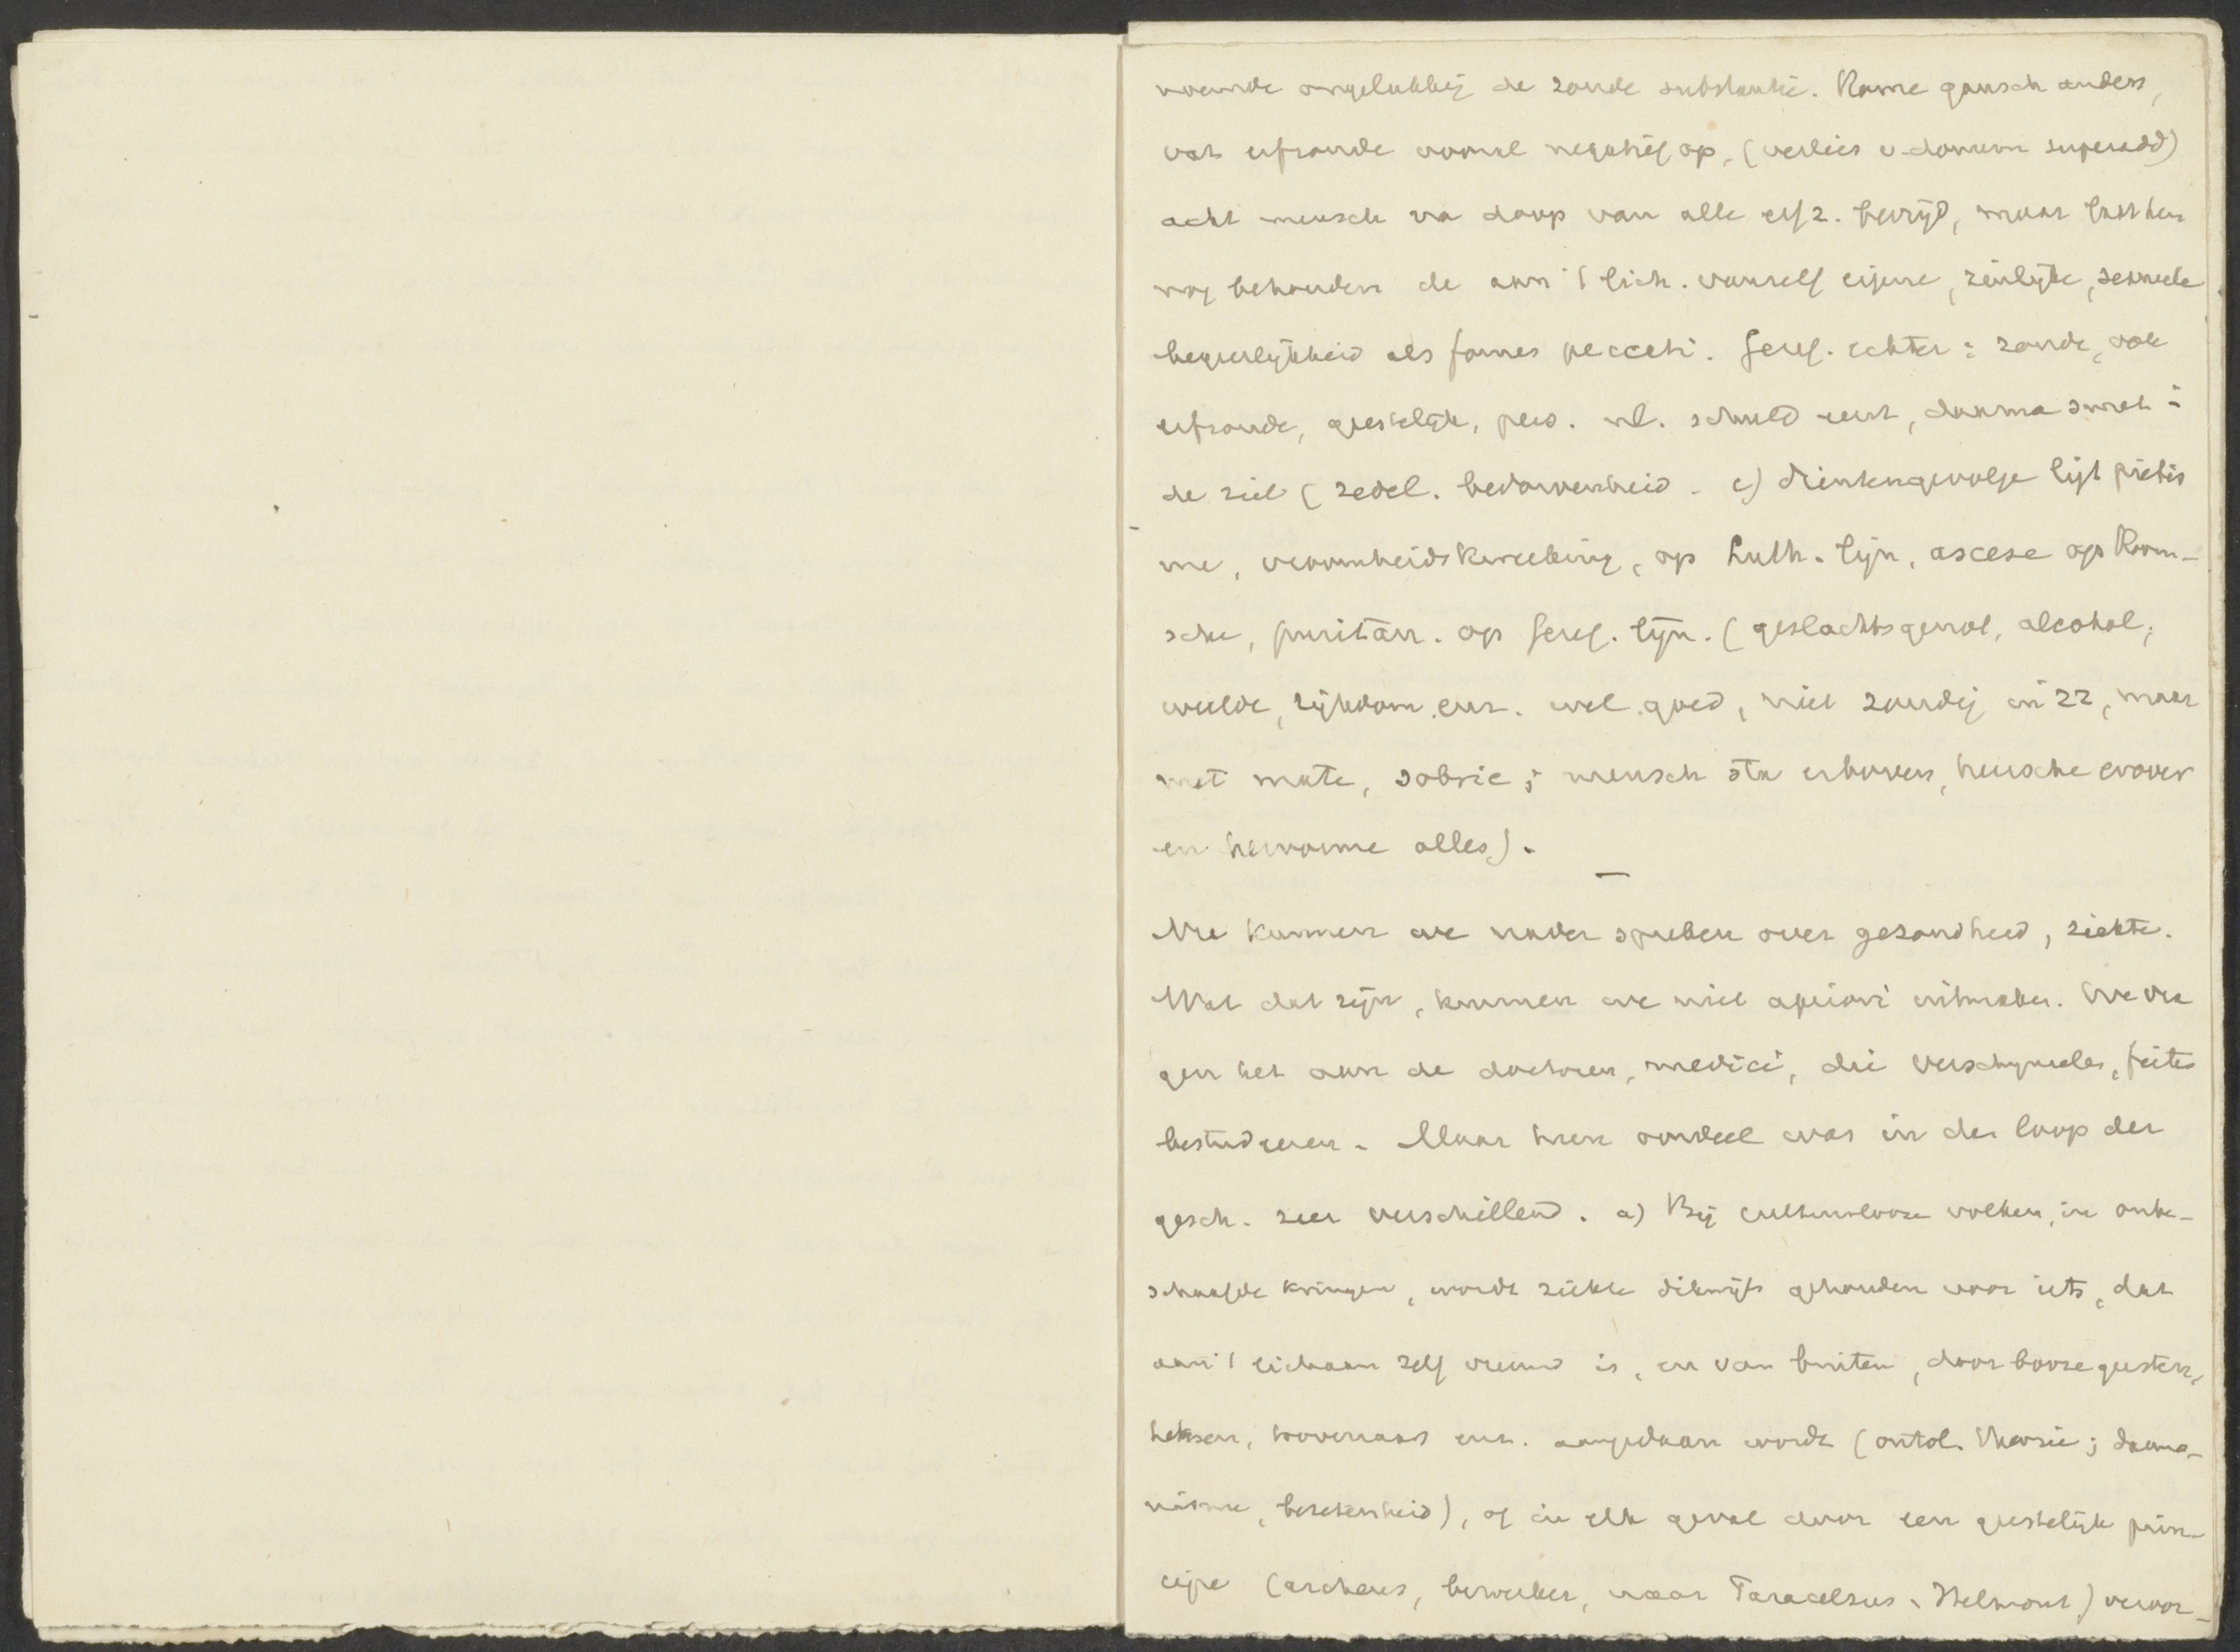 noemde ongelukkig de zonde substantie. Rome gansch anders,
vat erfzonde vooral negatief op, (verlies v. donum superadd)
acht mensch na doop van alle erfz. bevrijd, maar laat hem
nog behouden de aan 't lich. vanzelf eigene, zinlijke, sexueele
begeerlijkheid als fomes peccati. Geref. echter: zonde, ook
erfzonde, geestelijk, pers. nl. schuld eerst, daarna smet i
de ziel (zedel. bedorvenheid. c) Dientengevolge ligt pietis
me, vroomheidskweeking, op Luth. lijn, ascese op Room-
sche, puritan. op Geref. lijn. (geslachtsgenot, alcohol,
weelde, rijkdom enz. wel goed, niet zondig in zz, maar
met mate, sobrie; mensch sta erboven, heersche erover
en hervorme alles).
—
Nu kunnen we nader spreken over gezondheid, ziekte.
Wat dat zijn, kunnen we niet apriori uitmaken. We vra
gen het aan de doctoren, medici, die verschijnselen, feiten
bestudeeren. Maar hun oordeel was in den loop der
gesch. zeer verschillend. a) Bij cultuurlooze volken, in onbe-
schaafde kringen, wordt ziekte dikwijls gehouden voor iets, dat
aan 't lichaam zelf vreemd is, en van buiten, door booze geesten,
heksen, toovenaars enz. aangedaan wordt (ontol. theorie; daemo-
nisme, bezetenheid), of in elk geval door een geestelijk prin-
cipe (archeus, bewerker, naar Paracelsus, Helmont) veroor-